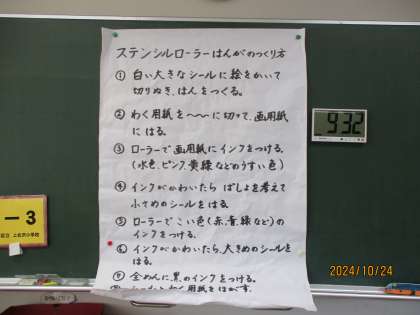 ステンシルローラーはんがのつくり方
① 白い大きなシールに絵をかいて
切りぬき、はんをつくる。
② わく用紙を〜〜に切って、画用紙
にはる。
③ ローラーで画用紙にインクをつける。
(水色、ピンク、黄緑などのうすい色)
④ インクがかわいたら ばしょを考えて
小さめのシールをはる。
⑤ ローラーでこい色(赤、青、緑など)の
インクをつける。
⑥ インクがかわいたら、大きめのシールを
はる。
⑦ 全めんに黒のインクをつける。
わく用紙をはがす。
9:32
-3
小学校
2024/10/24